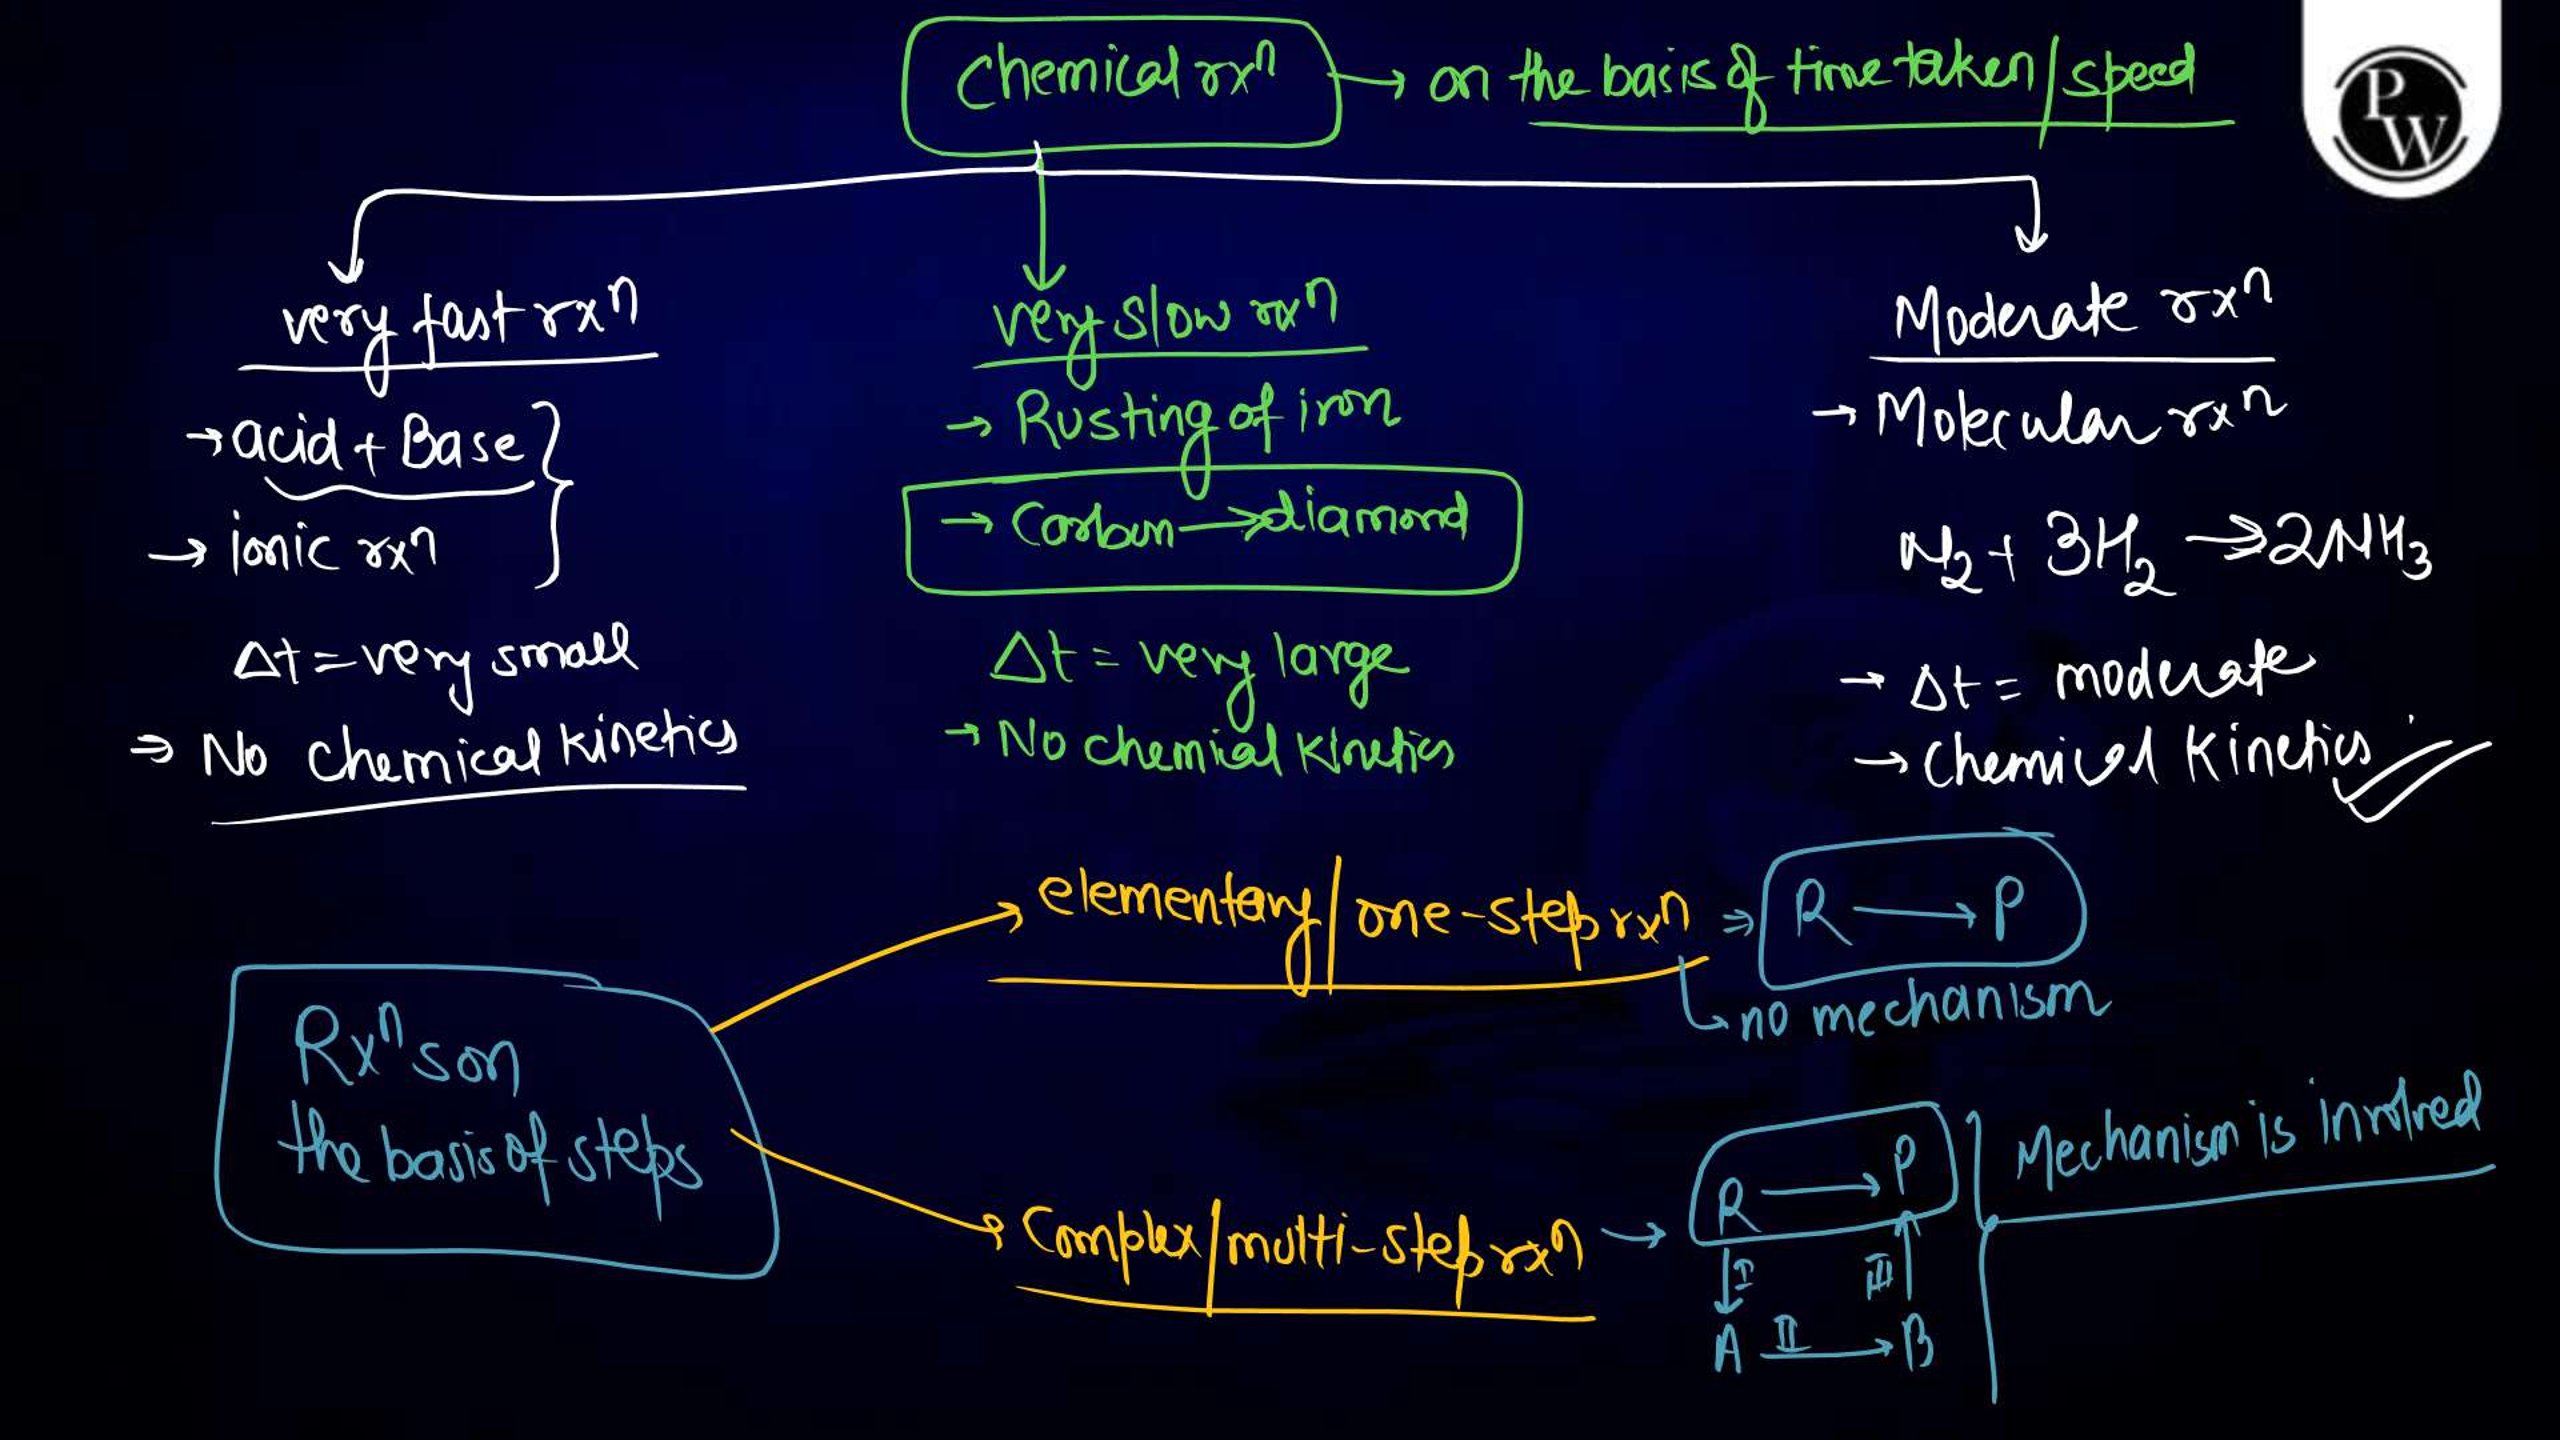 Chemical rxⁿ → on the basis of time taken/speed
PW
very fast rxⁿ
→ acid + Base
→ ionic rxⁿ
Δt = very small
⇒ No chemical kinetics
very slow rxⁿ
→ Rusting of iron
→ Carbon → diamond
Δt = very large
→ No chemial kinetics
Moderate rxⁿ
→ Molecular rxⁿ
N₂ + 3H₂ → 2NH₃
→ Δt = moderate
→ Chemical Kinetics
Rxⁿs on
the basis of steps
elementary/one-step rxⁿ ⇒ R → P
no mechanism
Complex/multi-step rxⁿ → R → P
I III
A II → B
Mechanism is involved